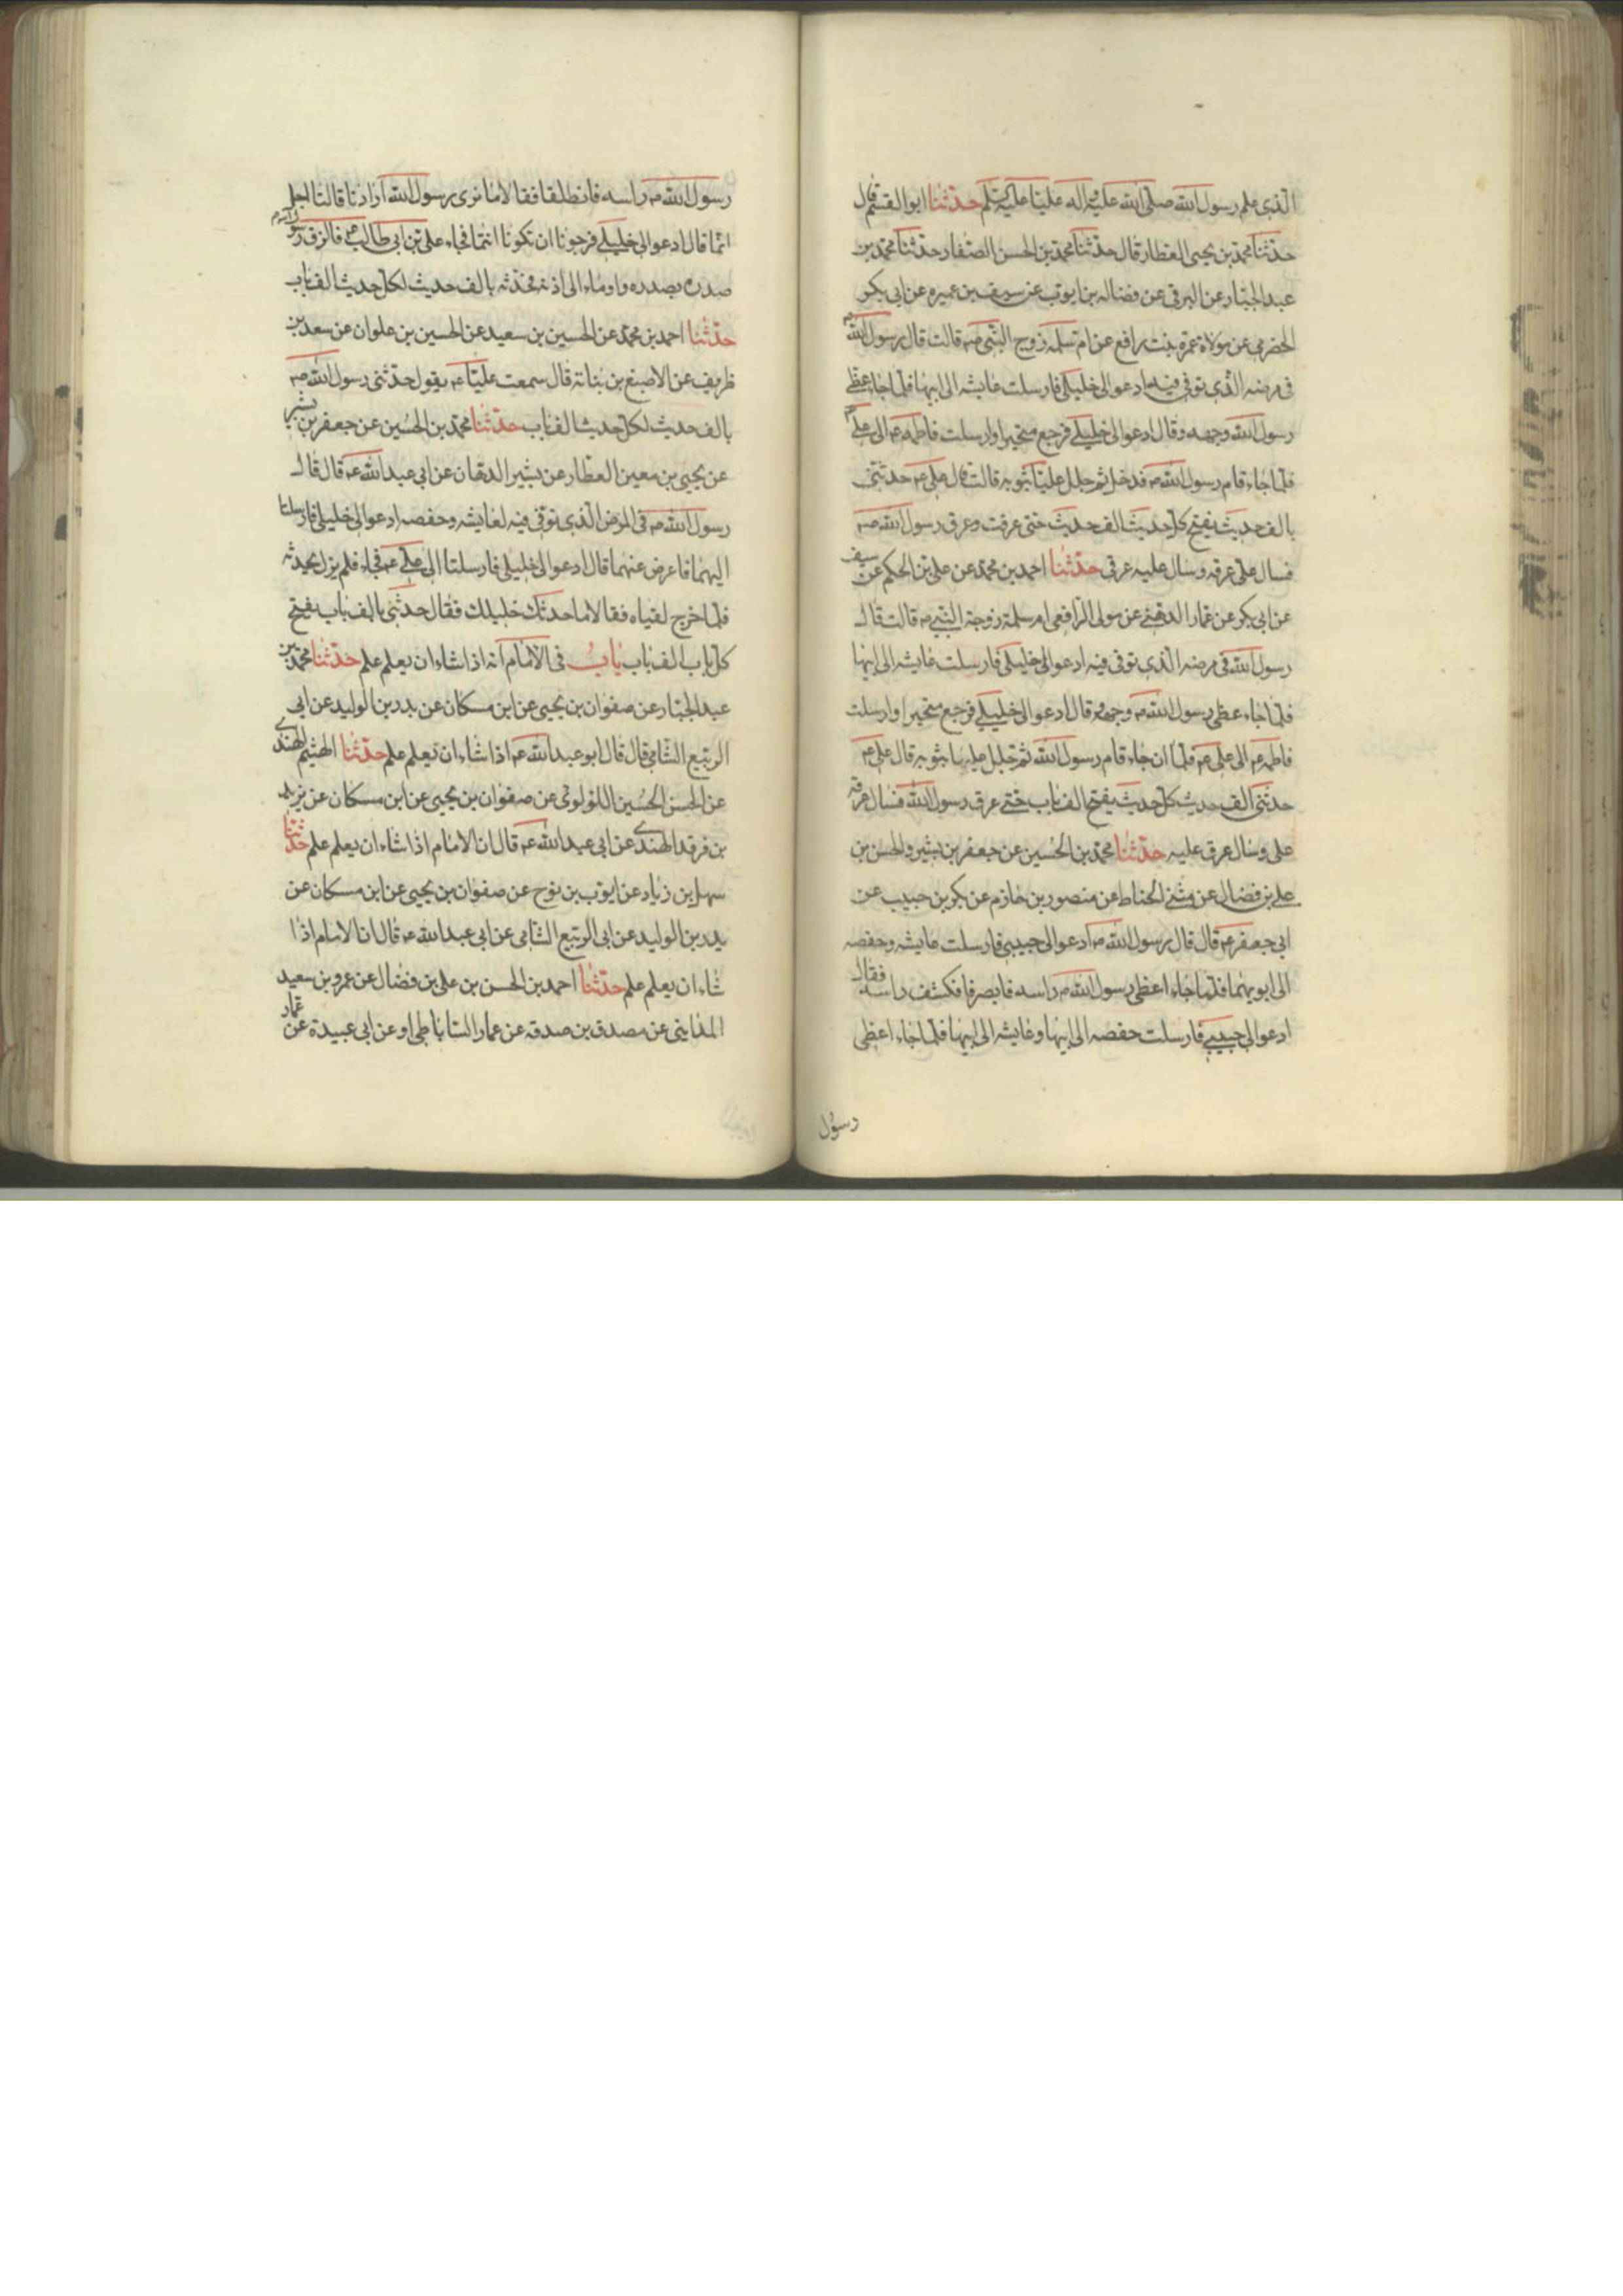 الذى علم رسول الله صلى الله عليه واله عليا عليه السلم حدثنا ابو القسم قال
حدثنا محمد بن يحيى العطار قال حدثنا محمد بن الحسن الصفار حدثنا محمد بن
عبد الجبار عن البرقى عن فضاله بن ايوب عن سيف بن عميره عن ابى بكر
الحضرمى عن مولاة عمرة بنت رافع عن ام سلمه زوج النبى ص قالت قال رسول الله ص
فى مرضه الذى توفى فيه ادعوا لى خليلى فارسلت عايشه الى ابيها فلما جاء غطى
رسول الله وجهه وقال ادعوا لى خليلى فرجع متحيرا وارسلت فاطمه ع الى على ع
فلما جاء قام رسول الله ص فدخل ثم جلل عليا بثوبه قالت قال على ع حدثنى
بالف حديث يفتح كل حديث الف حديث حتى عرقت وعرق رسول الله ص
فسال على عرقه وسال عليه عرقى حدثنا احمد بن محمد عن على بن الحكم عن سيف
عن ابى بكر عن عمار الدهنى عن مولى الرافعى ام سلمة زوجة النبى ص قالت قال
رسول الله فى مرضه الذى توفى فيه ادعوا لى خليلى فارسلت عايشه الى ابيها
فلما جاء غطى رسول الله ص وجهه وقال ادعوا لى خليلى فرجع متحيرا وارسلت
فاطمه ع الى على ع فلما ان جاء قام رسول الله ثم جلل عليا بثوبه قال على ع
حدثنى الف حديث كل حديث يفتح الف باب حتى عرق رسول الله فسال عرقه
على وسال عرقى عليه حدثنا محمد بن الحسين عن جعفر بن بشير والحسن بن
على بن فضال عن مثنى الحناط عن منصور بن حازم عن بكر بن حبيب عن
ابى جعفر ع قال قال رسول الله ص ادعوا لى حبيبى فارسلت عايشه وحفصه
الى ابويهما فلما جاء اغطى رسول الله ص راسه فانصرفا فكشف راسه فقال
ادعوا لى حبيبى فارسلت حفصه الى ابيها وعايشه الى ابيها فلما جاء اغطى
رسول
رسول الله ص راسه فانطلقا فقالا ما نرى رسول الله ارادنا قالتا اجل
انما قال ادعوا لى خليلى فرجونا ان تكونا انتما فجاء على بن ابى طالب ع فالزق رسول الله ص
صدره بصدره واوماء الى اذنه فحدثه بالف حديث لكل حديث الف باب
حدثنا احمد بن محمد عن الحسين بن سعيد عن الحسين بن علوان عن سعد بن
ظريف عن الاصبغ بن نباتة قال سمعت عليا ع يقول حدثنى رسول الله ص
بالف حديث لكل حديث الف باب حدثنا محمد بن الحسين عن جعفر بن بشير
عن يحيى بن معين العطار عن بشير الدهان عن ابى عبد الله ع قال قال
رسول الله ص فى المرض الذى توفى فيه لعايشه وحفصه ادعوا لى خليلى فارسلتا
اليهما فاعرض عنهما قال ادعوا لى خليلى فارسلتا الى على ع فجاء فلم يزل يحدثه
فلما خرج لقياه فقالا ما حدثك خليلك فقال حدثنى بالف باب يفتح
كل باب الف باب باب فى الامام انه اذا شاء ان يعلم علم حدثنا محمد بن
عبد الجبار عن صفوان بن يحيى عن ابن مسكان عن بدر بن الوليد عن ابى
الربيع الشامى قال قال ابو عبد الله ع اذا شاء ان يعلم علم حدثنا الهيثم النهدى
عن الحسن الحسين اللولوئى عن صفوان بن يحيى عن ابن مسكان عن يزيد
بن فرقد النهدى عن ابى عبد الله ع قال ان الامام اذا شاء ان يعلم علم حدثنا
سهل بن زياد عن ايوب بن نوح عن صفوان بن يحيى عن ابن مسكان عن
بدر بن الوليد عن ابى الربيع الشامى عن ابى عبد الله ع قال ان الامام اذا
شاء ان يعلم علم حدثنا احمد بن الحسن بن على بن فضال عن عمرو بن سعيد
المداينى عن مصدق بن صدقه عن عمار الساباطى او عن ابى عبيدة عن عمار